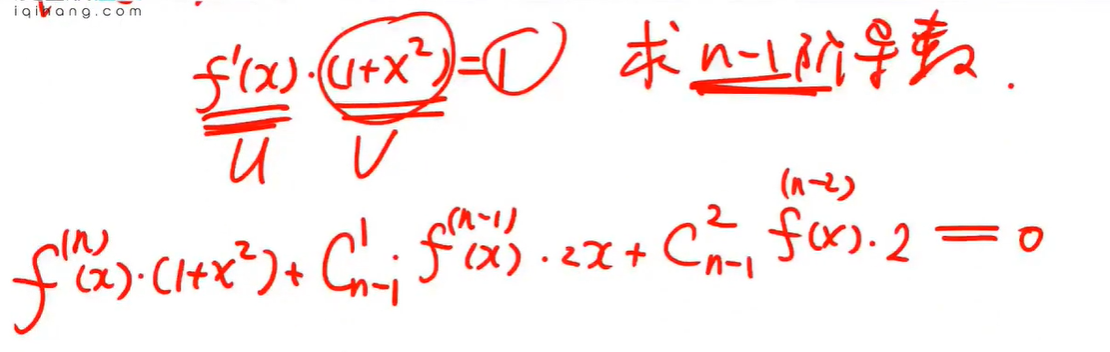 iqihang.com
f'(x)·(1+x²)=1 求n-1阶导数.
U V
f⁽ⁿ⁾(x)·(1+x²)+C¹ₙ₋₁f⁽ⁿ⁻¹⁾(x)·2x+C²ₙ₋₁f⁽ⁿ⁻²⁾(x)·2=0